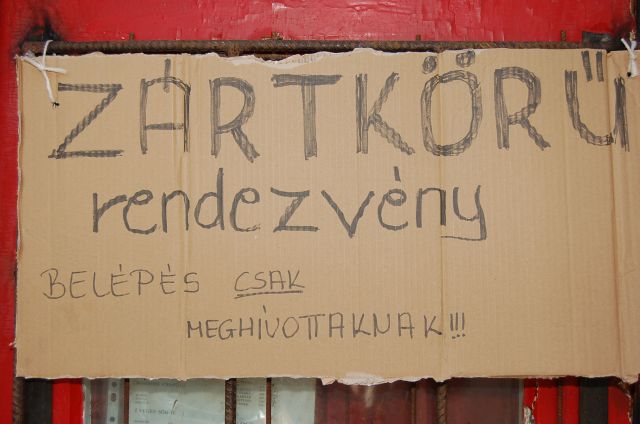 ZÁRTKÖRŰ
rendezvény
BELÉPÉS CSAK
MEGHÍVOTTAKNAK!!!